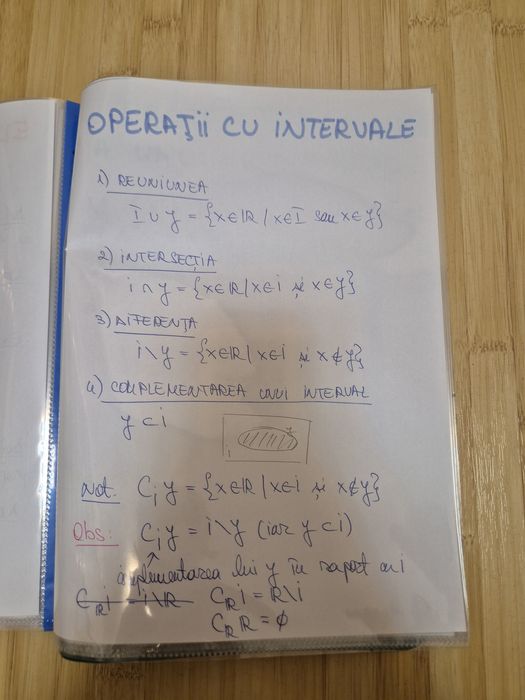 OPERAŢII CU INTERVALE
1) REUNIUNEA
I ∪ y = {x∈ℝ / x∈I sau x∈y}
2) INTERSECŢIA
i ∩ y = {x∈ℝ / x∈i şi x∈y}
3) DIFERENŢA
i \ y = {x∈ℝ / x∈i şi x∉y}
4) COMPLEMENTAREA UNUI INTERVAL
y ⊂ i
i
Not. C_i y = {x∈ℝ / x∈i şi x∉y}
Obs: C_i y = i \ y (iar y ⊂ i)
complementarea lui y în raport cu i
C_ℝ i = i \ ℝ C_ℝ i = ℝ \ i
C_ℝ ℝ = ∅